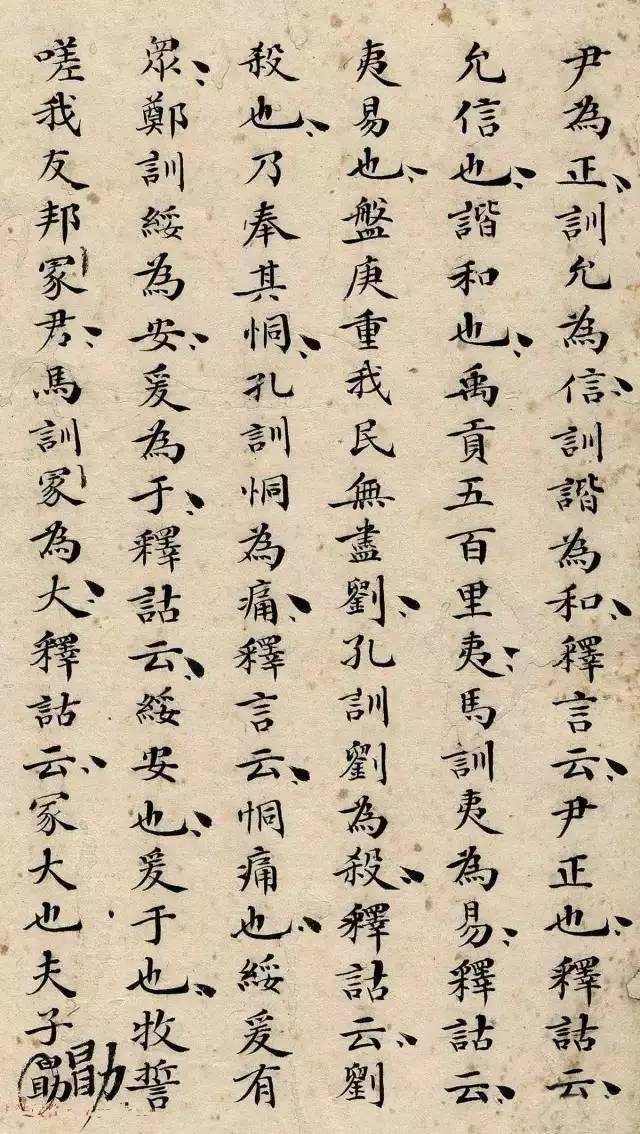 尹為正訓允為信訓諧為和釋言云尹正也釋詁云
允信也諧和也禹貢五百里夷馬訓夷為易釋詁云
夷易也盤庚重我民無盡劉孔訓劉為殺釋詁云劉
殺也乃奉其恫孔訓恫為痛釋言云恫痛也綏爰有
眾鄭訓綏為安爰為于釋詁云綏安也爰于也牧誓
嗟我友邦冢君馬訓冢為大釋詁云冢大也夫子勖